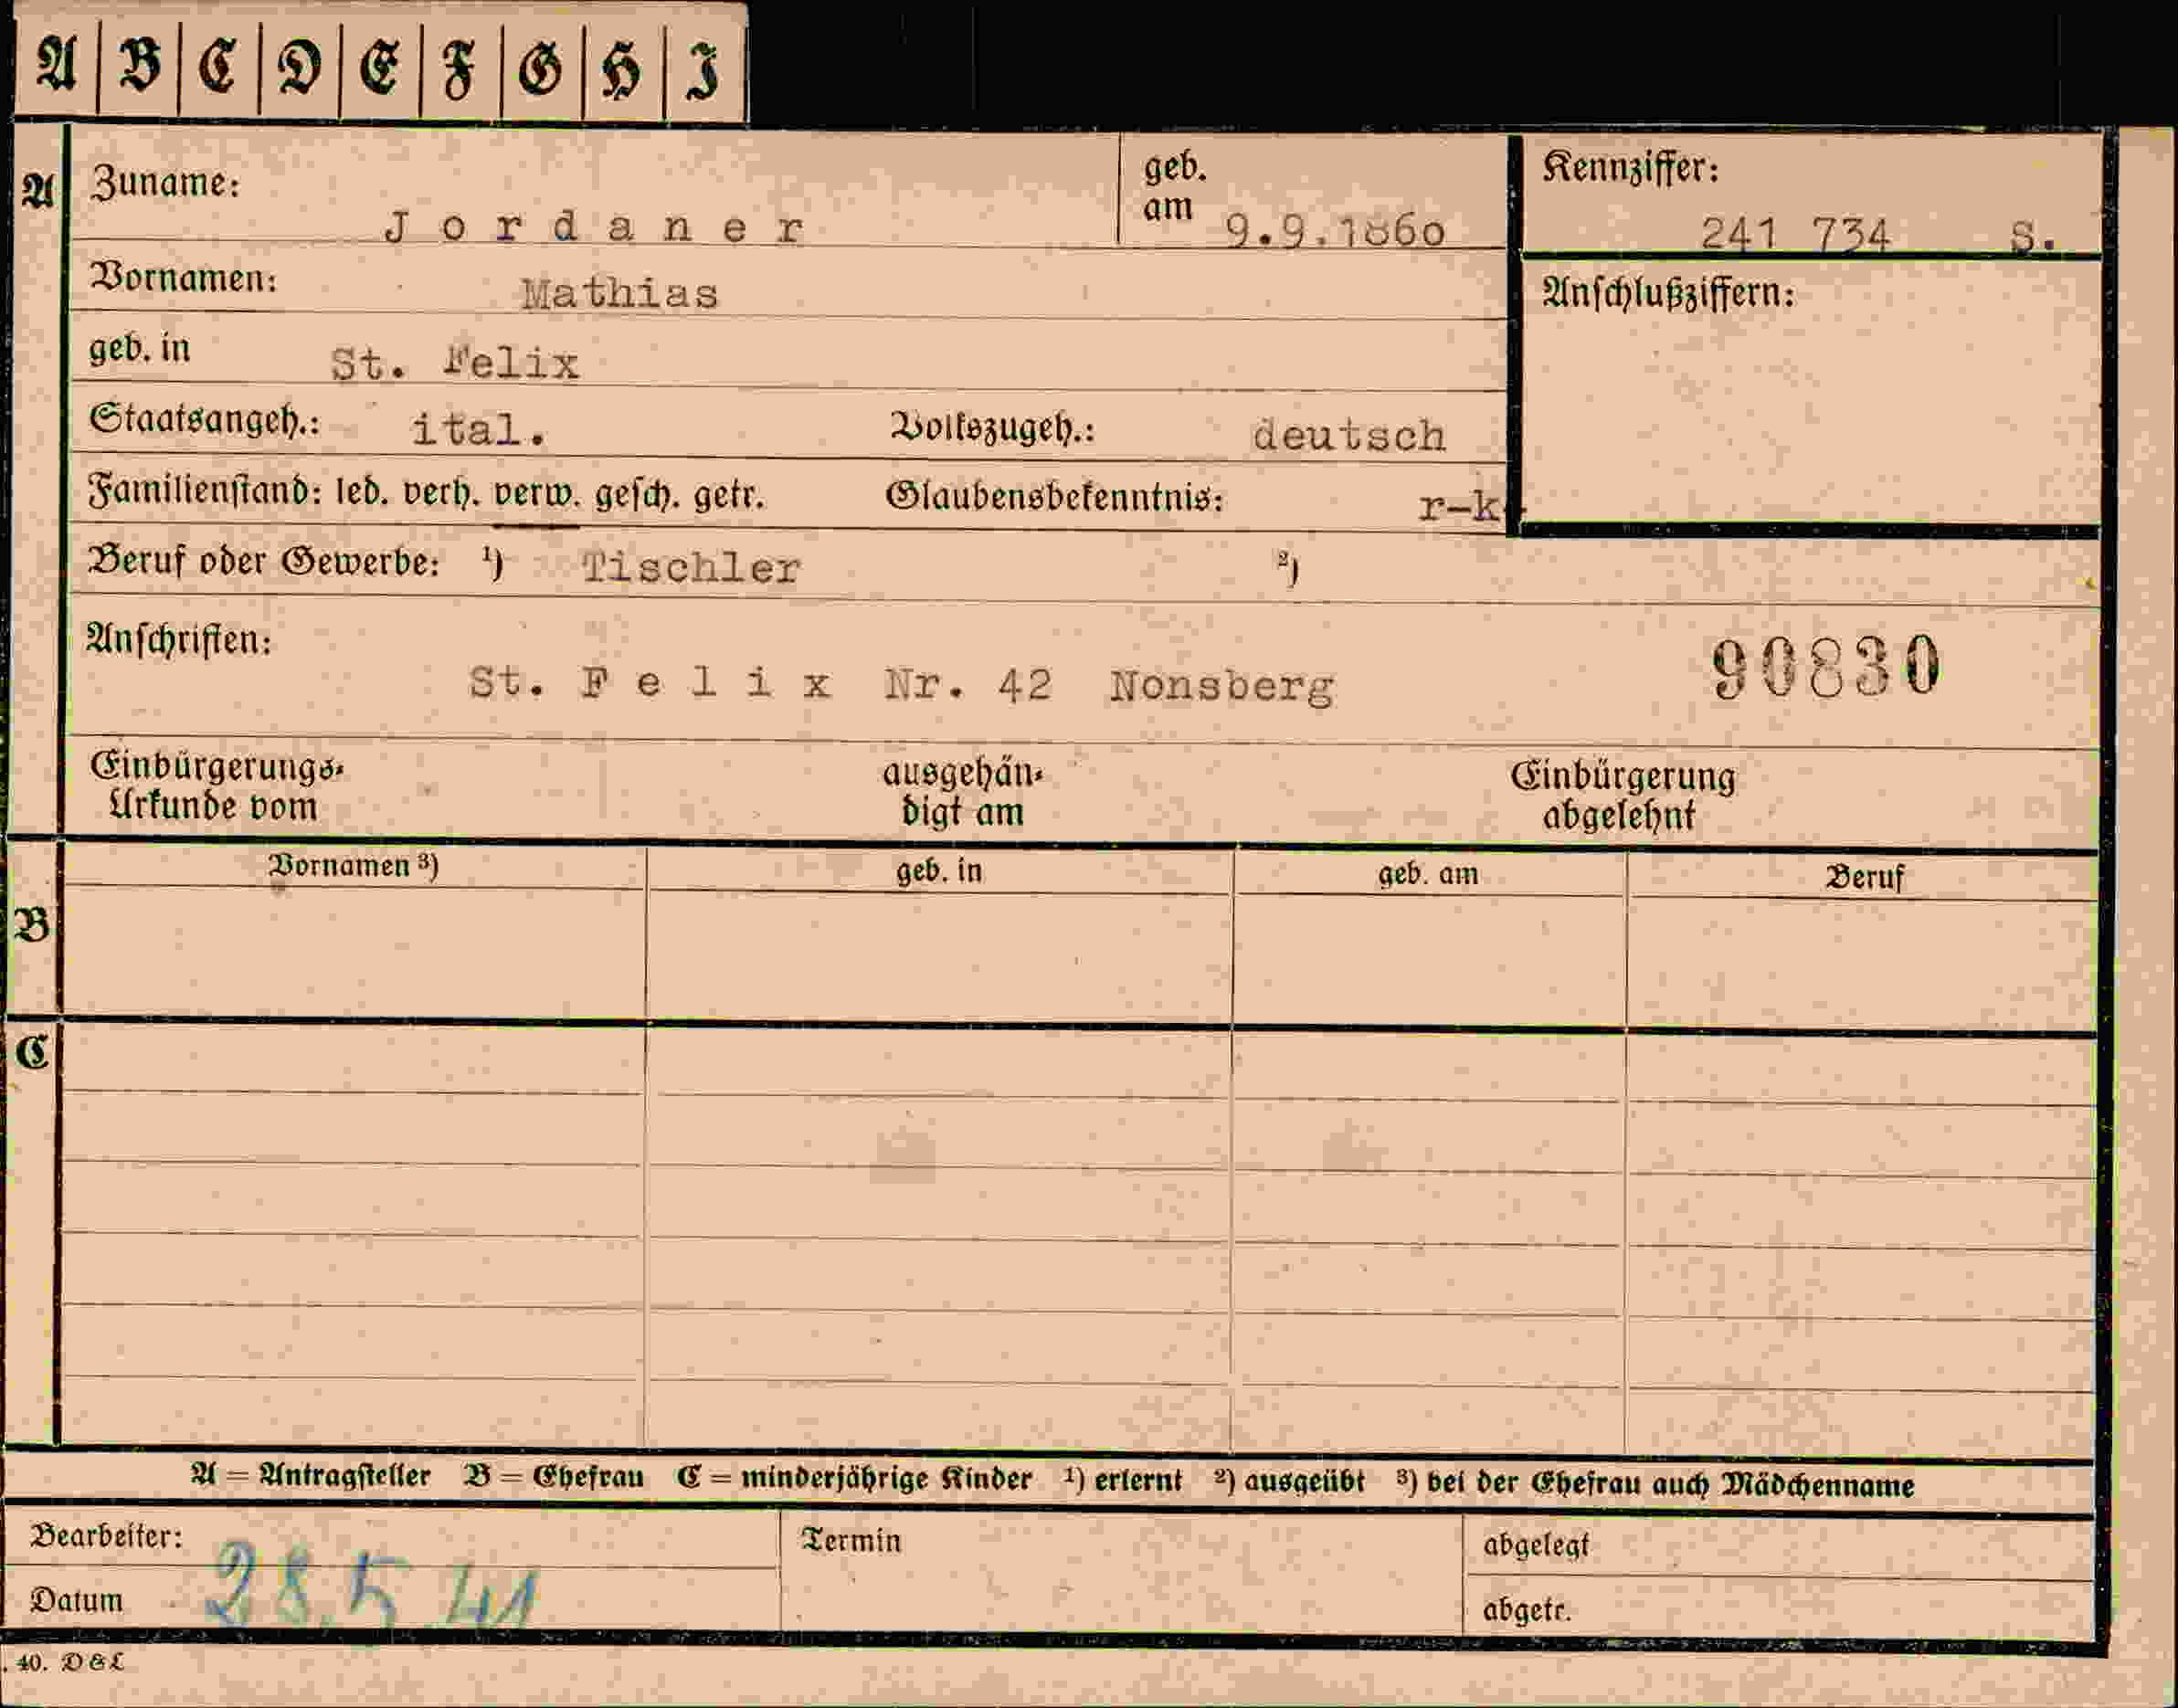 A B C D E F G H I
A Zuname: Jordaner geb. am 9.9.1860 Kennziffer: 241 734 S.
Vornamen: Mathias Anschlußziffern:
geb. in St. Felix
Staatsangeh.: ital. Volkszugeh.: deutsch
Familienstand: led. verh. verw. gesch. getr. Glaubensbekenntnis: r-k
Beruf oder Gewerbe: ¹) Tischler ²)
Anschriften: 90830
St. Felix Nr. 42 Nonsberg
Einbürgerungs- ausgehän- Einbürgerung
Urkunde vom digt am abgelehnt
Vornamen ³) geb. in geb. am Beruf
B
C
A = Antragsteller B = Ehefrau C = minderjährige Kinder ¹) erlernt ²) ausgeübt ³) bei der Ehefrau auch Mädchenname
Bearbeiter: Termin abgelegt
Datum 28.5.41 abgetr.
. 40. D&L